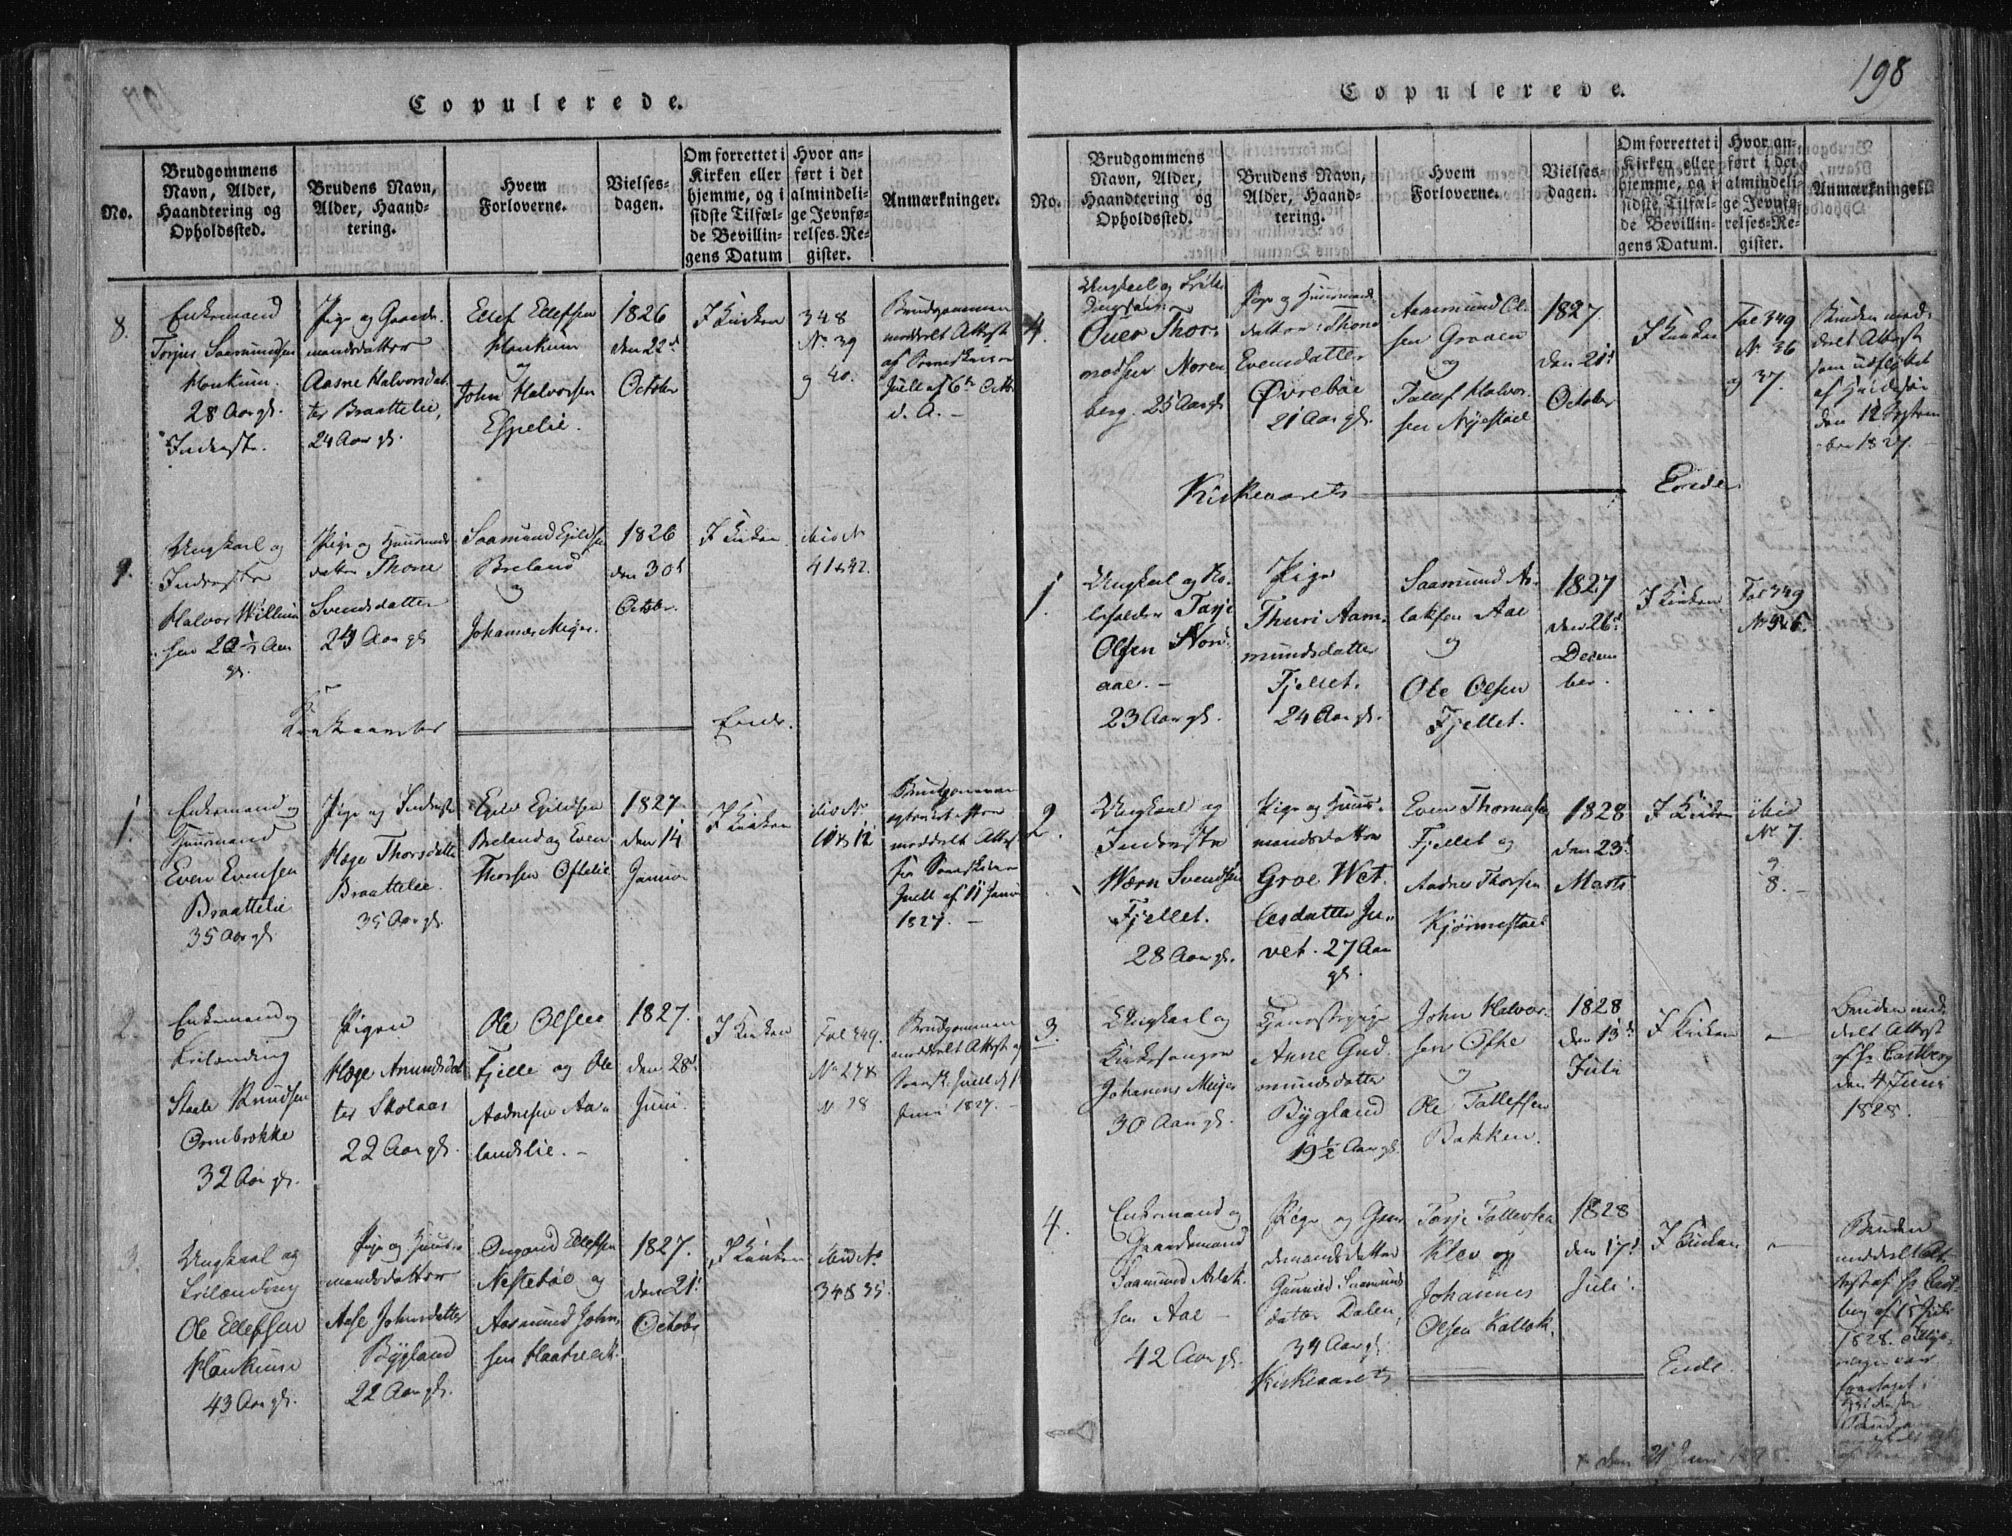 Copulerede.
No.
Brudgommens
Navn, Alder,
Haandtering og
Opholdssted.
Brudens Navn,
Alder, Haand-
tering.
Hvem
Forloverne.
Vielses-
dagen.
Om forrettet i
Kirken eller
hjemme, og i
sidste Tilfæl-
de Bevillin-
gens Datum
Hvor an-
ført i det
almindeli-
ge Jevnfø-
relses-Re-
gister.
Anmærkninger.
8.
Enkemand
Torjus Saamundsen
Haukum.
28 Aar gl.
Inderste.
Pige og Gaard-
mandsdatter
Aasne Halvorsdat-
ter Braattelie,
24 Aar gl.
Ellef Ellefsen
Haukum
og
John Halvorsen
Espelie.
1826
den 22d
October
I Kirken
348
No 39
og 40.
Brudgommen
meddelt Attest
af
Juell af 6te Octb.
d. A. -
9.
Ungkarl og
Inderste
Halvor Willum-
sen 22 1/2 Aar
gl.
Pige og Huusmands-
datter Thone
Svendsdatter
24 Aar gl.
Saamund Egildsen
Breland
og
Johannes Meyer.
1826
den 30d
October.
I Kirken.
ibidt
41 & 42.
Kirkeaarets
Ende.
1.
Enkemand og
Huusmand
Even Evensen
Braattelie
35 Aar gl.
Pige og Inderste
Hæge Thorsdatter
Braattelie.
35 Aar gl.
Egild Egildsen
Breland og Even
Thorsen Oftelie
1827
den 14
Januar
I Kirken
ibidt
11 & 12
Brudgommen
meddelt Attest
fra
Juell af 11 Janv.
1827. -
2.
Enkemand og
Leilænding
Staale Knudsen
Ormbrekke
32 Aar gl.
Pigen
Hæge Amundsdat-
ter Skolaas
22 Aar gl.
Ole Olsen
Fjelle og Ole
Aadnesen Aa-
landslie. -
1827.
den 28d
Juni.
I Kirken
Fol 349.
No 27 &
N 28
Brudgommen
meddelt Attest af
Juell af 1
Juni 1827. -
3.
Ungkarl og
Leilænding
Ole Ellefsen
Haukum
43 Aar gl.
Pige og Huus-
mandsdatter
Aase Johnsdatter
Bygland
22 Aar gl.
Ougund Ellefsen
Nesteböe og
Aasmund John-
sen
1827.
den 21d
October
I Kirken
ibid No
34 & 35.
198
Copulerede.
No.
Brudgommens
Navn, Alder,
Haandtering og
Opholdssted.
Brudens Navn,
Alder, Haand-
tering.
Hvem
Forloverne.
Vielses-
dagen.
Om forrettet i
Kirken eller
hjemme, og i
sidste Tilfæl-
de Bevillin-
gens Datum.
Hvor an-
ført i det
almindeli-
ge Jevnfø-
relses-Re-
gister.
Anmærkninger.
4.
Ungkarl og
Ouer Thor-
modsen Noren
berg. 25 Aar gl.
Pige og Huusmands-
datter: Thone
Evensdatter
Øvreböe
21 Aar gl.
Aanmund Ol-
sen Graaen
og
Tallef Halvor-
sen Nyestad
1827
den 21d
October
I Kirken
Fol 349
No 36
og 37.
Bruden med-
delt Attest
som udflyttet
af Hvidesøe
den 12 Septem-
ber 1827. -
Kirkeaarets
Ende
1.
Ungkarl og
Tarje
Olsen Nord-
aae. -
23 Aar gl.
Pige
Thuri Aam-
mundsdatter
Fjellet.
24 Aar gl.
Saamund As-
laksen Aae
og
Ole Olsen
Fjellet.
1827
den 26d
Decem
ber.
I Kirken
Fol 349
2.
Ungkarl og
Inderste
Wærn Svendsen
Fjellet.
28 Aar gl.
Pige og Huus-
mandsdatter
Groe Wet-
lesdatter Ju-
vet. 27 Aar
gl.
Even Thomesen
Fjellet og
Aadne Thorsen
Kjörmestad
1828
den 23d
Marts
I Kirken
ibid
No 7.
og
8. -
3.
Ungkarl og
Kirkesanger
Johannes Meijer
30 Aar gl.
Tjenestepige
Anne Gud-
mundsdatter
Bygland
19 1/2 Aar gl.
John Halvor-
sen Ofte
og
Ole Tallefsen
Bakken.
1828
den 13d
Juli
I Kirken
-
Bruden med-
delt Attest
af Hr Castberg
den 4 Juni
1828.
4.
Enkemand og
Gaardmand
Saamund Aslak-
sen Aae -
42 Aar gl.
Pige og Gaar-
demandsdatter
Gunnild Saamunds
datter Dalen,
34 Aar gl.
Tarje Tallevsen
Klev og
Johannes
Olsen
1828
den 17d
Juli.
I Kirken
-
Bruden
meddelt At-
test af Hr Cast-
berg af 15 Juli
1828.
Kirkeaarets
Ende.